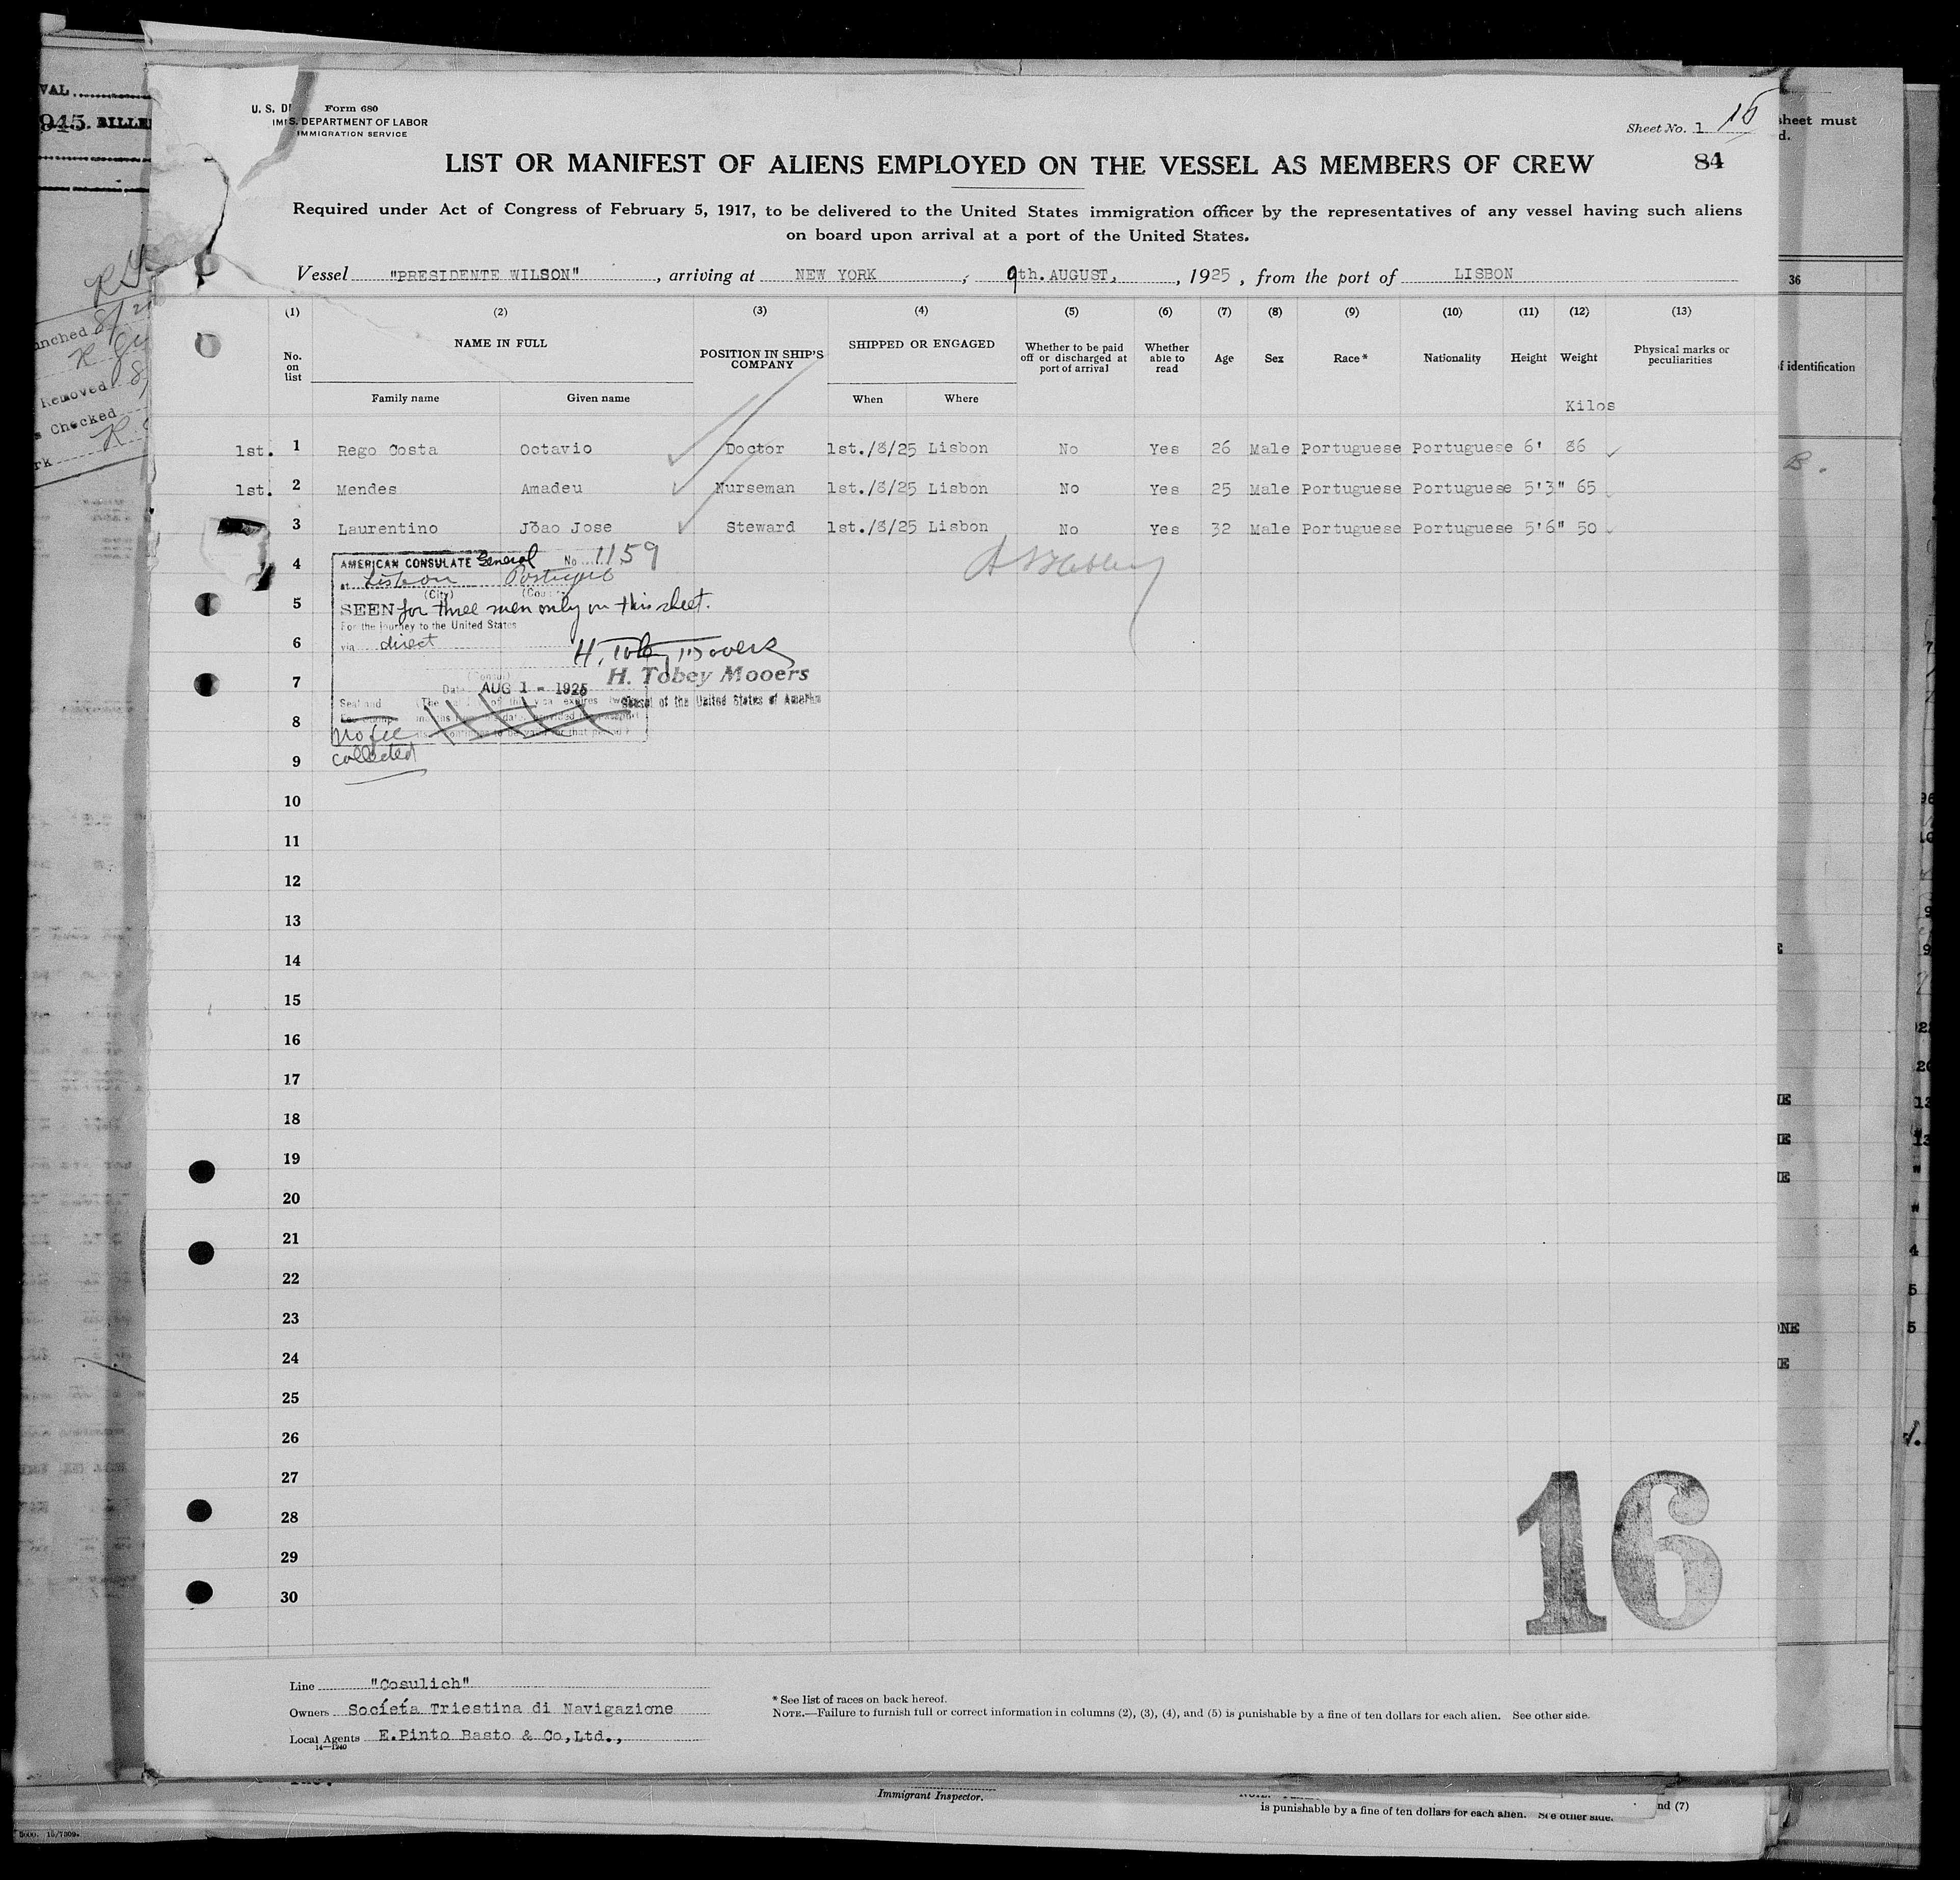 U. S. DE Form 680
IMI S. DEPARTMENT OF LABOR
IMMIGRATION SERVICE
Sheet No. 1 16
84
LIST OR MANIFEST OF ALIENS EMPLOYED ON THE VESSEL AS MEMBERS OF CREW
Required under Act of Congress of February 5, 1917, to be delivered to the United States immigration officer by the representatives of any vessel having such aliens
on board upon arrival at a port of the United States.
Vessel "PRESIDENTE WILSON", arriving at NEW YORK, 9th. AUGUST, , 1925, from the port of LISBON
(1) (2) (3) (4) (5) (6) (7) (8) (9) (10) (11) (12) (13)
No. on list NAME IN FULL POSITION IN SHIP'S COMPANY SHIPPED OR ENGAGED Whether to be paid off or discharged at port of arrival Whether able to read Age Sex Race* Nationality Height Weight Physical marks or peculiarities
Family name Given name When Where Kilos
1st. 1 Rego Costa Octavio Doctor 1st./8/25 Lisbon No Yes 26 Male Portuguese Portuguese 6' 86
1st. 2 Mendes Amadeu Nurseman 1st./8/25 Lisbon No Yes 25 Male Portuguese Portuguese 5'3" 65
3 Laurentino Jõao Jose Steward 1st./8/25 Lisbon No Yes 32 Male Portuguese Portuguese 5'6" 50
4
AMERICAN CONSULATE General No. 1159
at Lisbon Portugal
(City) (Country)
5
SEEN for three men only on this sheet.
For the journey to the United States
6
via direct
H. Tobey Mooers
7
H. Tobey Mooers
Date AUG 1 - 1925
Consul of the United States of America
8
Seal and
No fee
collected
9
10
11
12
13
14
15
16
17
18
19
20
21
22
23
24
25
26
27
28
29
30
16
Line "Cosulich"
Owners Societa Triestina di Navigazione
Local Agents E.Pinto Basto & Co,Ltd.,
14—1240
* See list of races on back hereof.
NOTE.—Failure to furnish full or correct information in columns (2), (3), (4), and (5) is punishable by a fine of ten dollars for each alien. See other side.
Immigrant Inspector.
is punishable by a fine of ten dollars for each alien. See other side.
nd (7)
VAL
945.
sheet must
d.
36
f identification
Removed
Checked